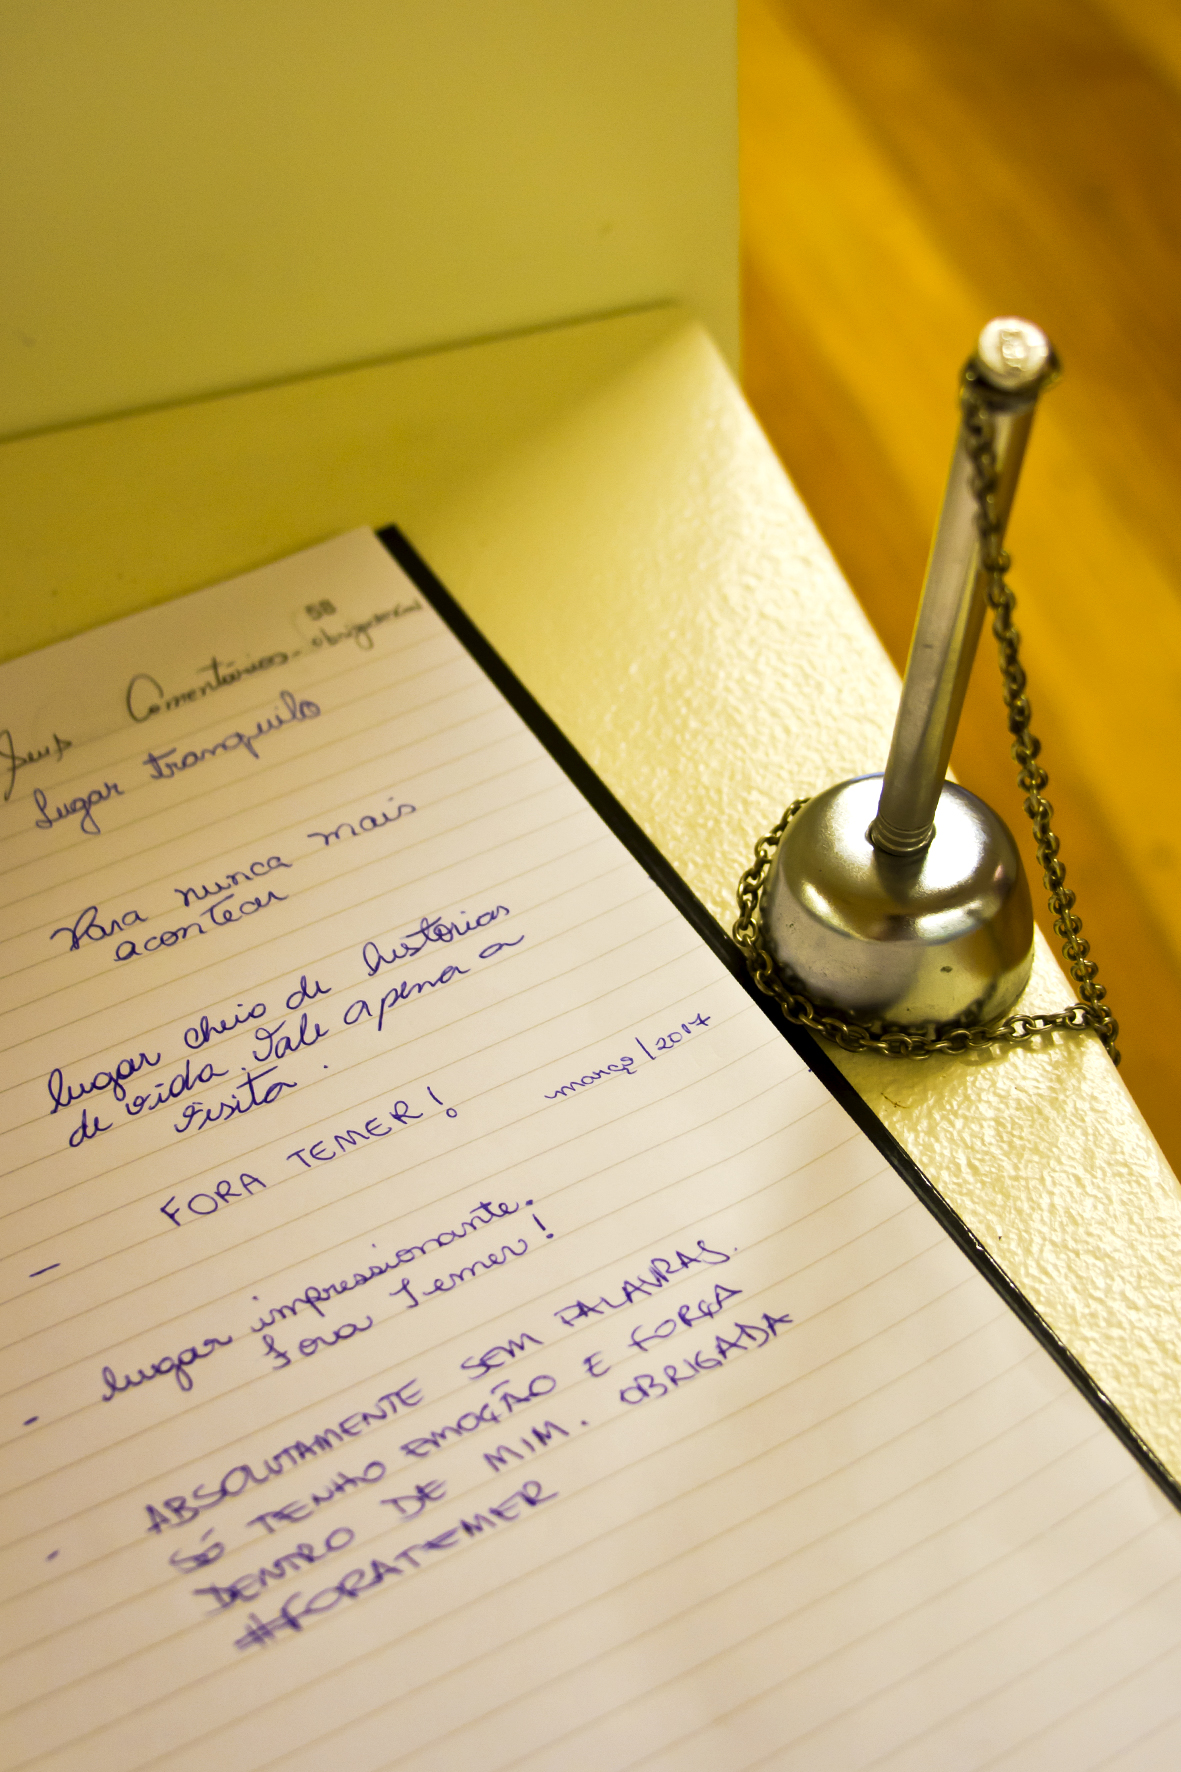 58
Comentários - obrigatório
Lugar tranquilo
Para nunca mais
acontecer
lugar cheio de historias
de vida. Vale a pena a
visita.
março/2017
- FORA TEMER!
- lugar impressionante.
Fora Temer!
- ABSOLUTAMENTE SEM PALAVRAS.
SÓ TENHO EMOÇÃO E FORÇA
DENTRO DE MIM. OBRIGADA
#FORATEMER